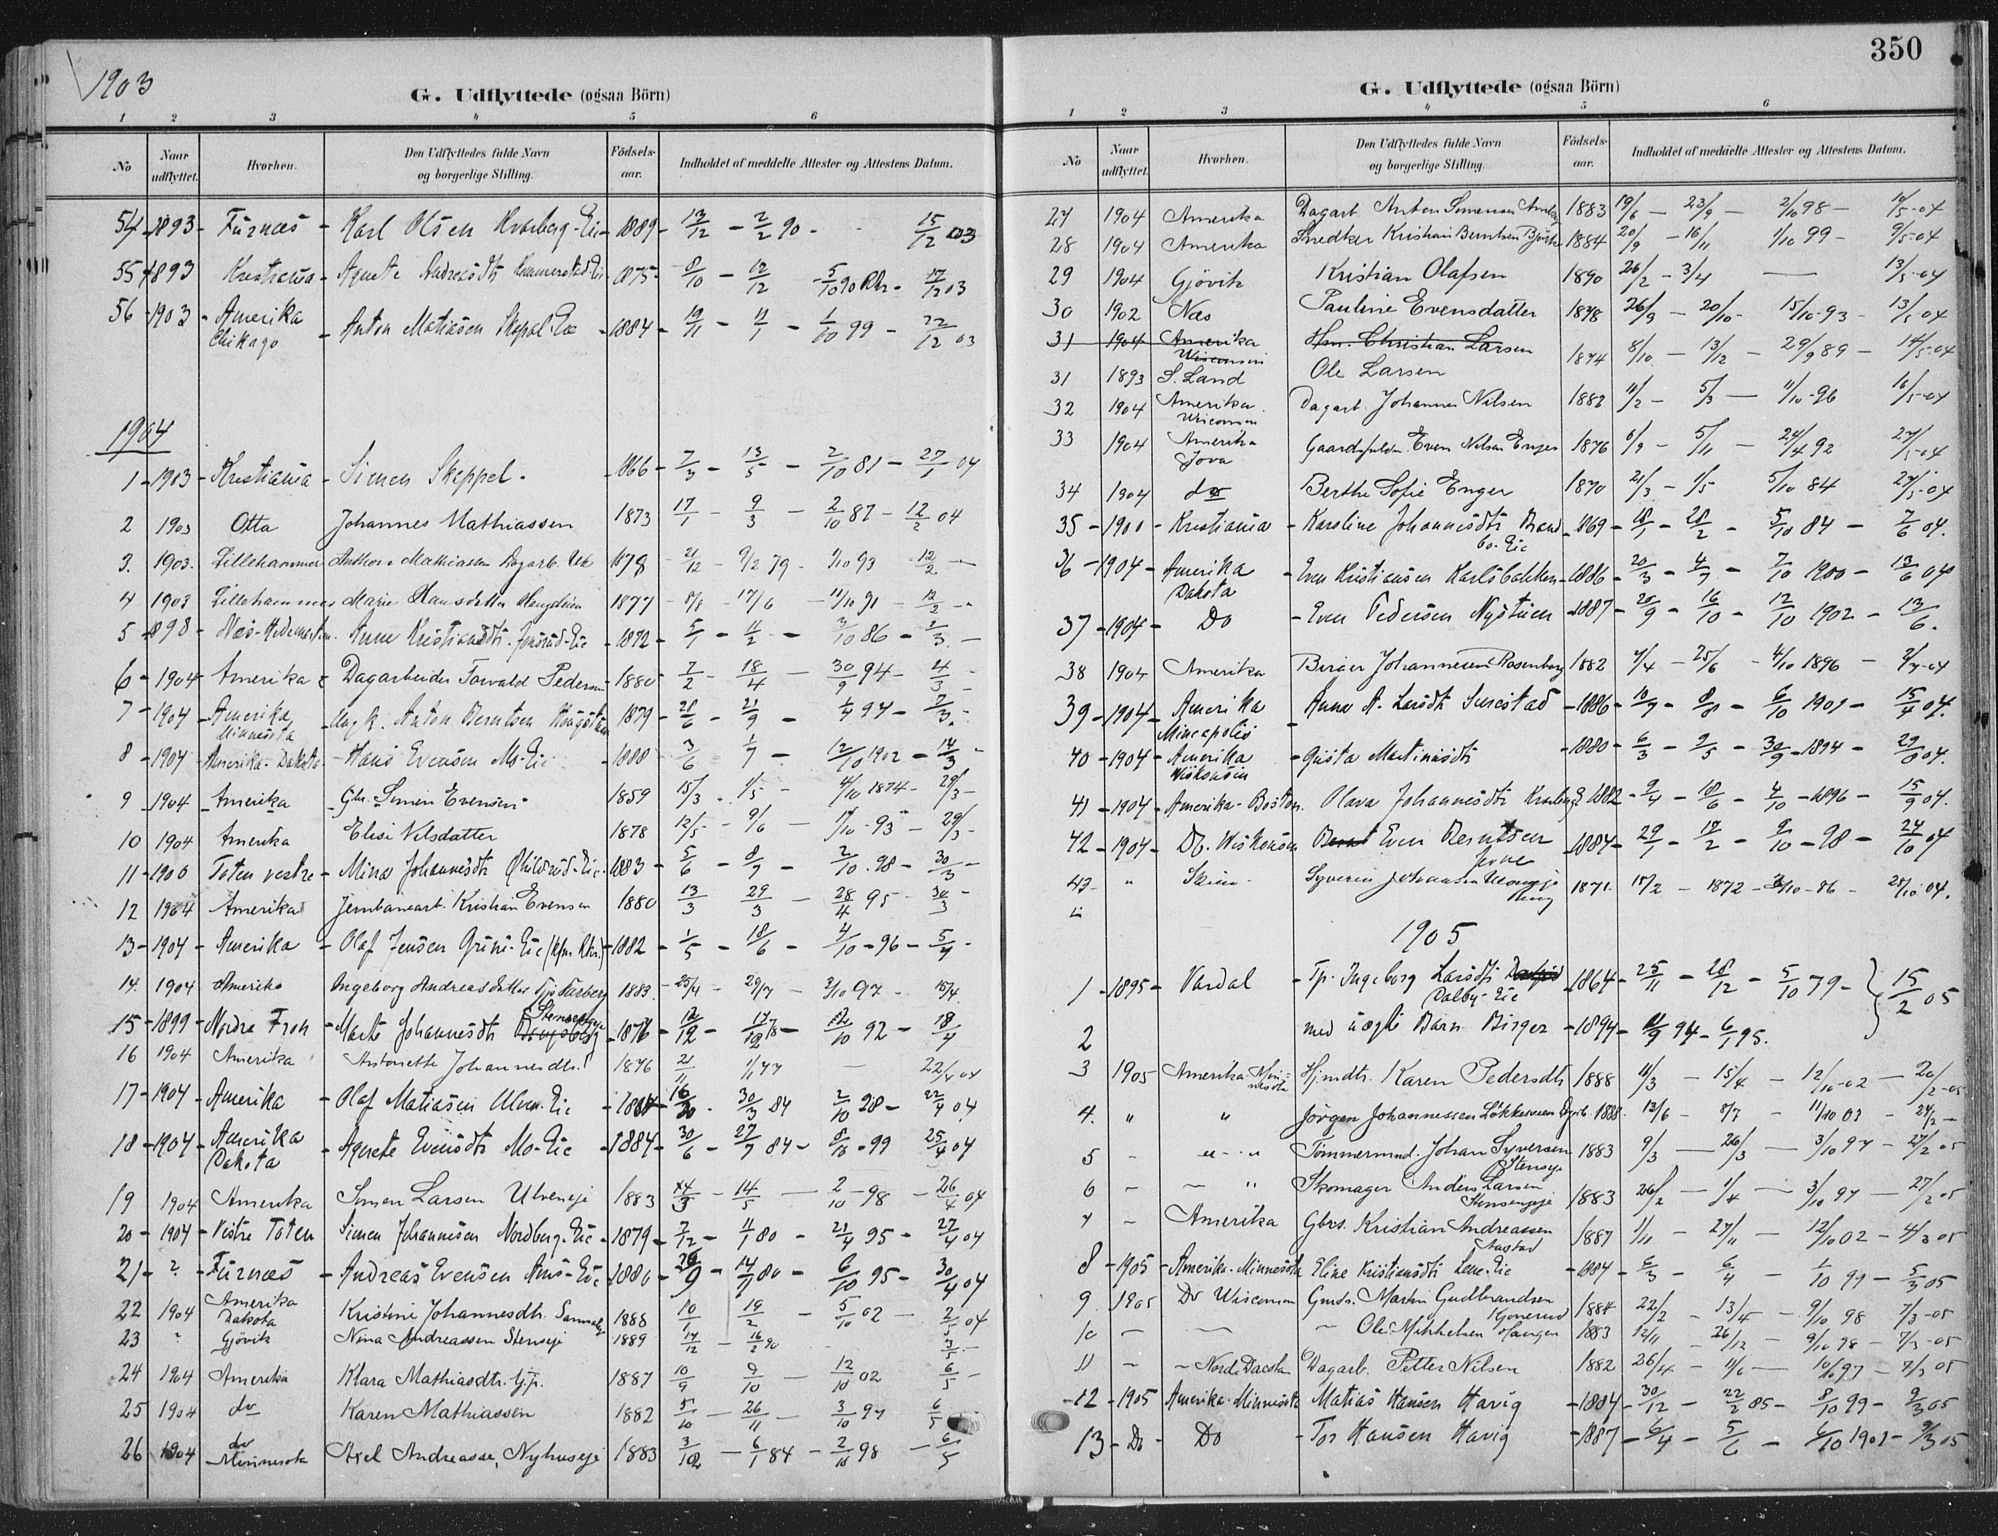 1903
G. Udflyttede (ogsaa Börn)
1 2 3 4 5 6
No Naar udflyttet. Hvorhen. Den Udflyttedes fulde Navn og borgerlige Stilling. Födsels-aar. Indholdet af meddelte Attester og Attestens Datum.
54 - 1893 - Furnæs - Karl Olsen Kvarberg-Eie - 1889 - 13/12 - 2/2 90 - - 15/12 03
55 - 1893 Kristiania - Agnete Andreasdtr - Eie - 1875 - 8/10 - 12/12 - 5/10 90 - 17/12 03
56 - 1903 - Amerika Chikago - Anton Matiasen Skepal-Eie - 1884 - 19/11 - 11/1 - 1/10 99 - 22/12 03
1904
1 - 1903 - Kristiania - Simen Skeppel - 1866 - 7/3 - 13/5 - 2/10 81 - 27/1 04
2 1903 Otta Johannes Mathiassen 1873 17/1 - 9/3 - 2/10 87 - 12/2 04
3. 1903. Lillehammer Mathiassen Dagarb. 1878 21/12 - 9/2 79 - 1/10 93 - 12/2 -
4 1903 Lillehammer Marie Hansdatter 1877 - 8/8 - 17/6 - 11/10 91 - 12/2 -
5 - 1898 - Næs-Hedemarken. Anne Kristiansdtr. - Eie - 1872 - 5/1 - 11/2 - 3/10 86 - 2/3 -
6 - 1904 - Amerika Dagarbeider Torvald Pedersen - 1880 - 7/2 - 18/4 - 30/9 94 - 4/3 -
7 - 1904 - Amerika Minnesota - Ungk. Anton Berntsen 1879 - 28/6 - 21/9 - 94 - 7/3 -
8 - 1904 - Amerika-Dakota - Hans Evensen Mo-Eie - 1888 - 3/6 1/7 - 12/10 1902 - 14/3 -
9 - 1904 - Amerika - Gbr. Simen Evensen 1859 15/3 - 1/5 - 4/10 1874 - 29/3 -
10 1904 Amerika Elise Nilsdatter 1878 12/5 - 9/6 - 93 - 29/3 -
11 - 1900 - Toten vestre - Mina Johannesdtr - Eie - 1883 - 5/6 - 8/7 - 2/10 98 - 30/3 -
12 1904 - Amerika Jernbanearb. Kristian Evensen 1880 13/3 29/3 - 28/4 95 - 30/3 -
13 - 1904 - Amerika - Olaf Jensen Grini-Eie - 1882 - 1/5 - 18/6 - 4/10 - 96 - 5/4 -
14. 1904 Amerika Ingeborg Andreasdatter 1883 - 25/4 - 29/7 - 3/10 97 -
Stenseng
15 - 1899 - Nordre Fron - Marte Johannesdtr - 1876 - 12/12 - - 12/10 92 - 18/4
16 1904 Amerika Antonette Johannesdtr. 1876 21/11 1/1 77 - 22/4 04
17 - 1904 - Amerika - Olaf Matiasen Ulven-Eie - 30/3 84 2/10 28 - 22/4 04
18 - 1904 - Amerika Dakota - Agnete Evensdtr Mo-Eie - 1884 - 30/6 - 27/7 84 - 8/10 - 99 25/4 04
19 1904 Amerika Simen Larsen Ulveneje 1883 - 14/5 - 2/10 - 98 - 26/4 04
20 - 1904 - Vestre Toten Simen Johannesen Nordberg-Eie - 1879 - 7/12 - 11/1 80 - 21/4 95 - 27/4 04
21 - ? - Furnæs - Andreas Evensen - Eie 1880 - 26/9 - 14/1 80 - 6/10 95 - 30/4 04
22 1904 Amerika Dakota Kristine Johannesdtr. 1888 10/1 19/2 - 5/10 02 - 2/5 04
23 " Gjövik Nina Andreassen Stenseje 1889 14/12 - 16/2 90 3/5 -
24 1904 Amerika Klara Mathiasdtr. 1887 10/9 9/10 - 12/10 02 6/5 -
25 1904 do Karen Mathiassen 1882 5/10 - 26/11 - 3/10 97 6/5
26 1904 do Minnesota Axel Andreasse, Nyhuseje 1883 3/12 - 6/1 84 - 2/10 98 - 6/5
350
G. Udflyttede (ogsaa Börn)
1 2 3 4 5 6
No Naar udflyttet. Hvorhen. Den Udflyttedes fulde Navn og borgerlige Stilling. Födsels-aar. Indholdet af meddelte Attester og Attestens Datum.
27 1904 Amerika Dagarb. Anton Simensen 1883 19/6 - 23/9 - 2/10 98 - 14/5-04
28 1904 Amerika Snedker Kristian Berntsen 1884 20/9 - 16/11 1/10 99 - 9/5-04
29 1904 Gjövik Kristian Olafsen 1890 26/2 - 3/4 - 13/5-04
30 1902 Næs Pauline Evensdatter 1878 26/9 - 20/10 - 15/10-93 - 13/5 04
31 1904 Amerika Wisconsin Christian Larsen
31 1893 S. Land Ole Larsen 1874 8/10 - 13/12 - 29/9 89 - 14/5-04
32 1904 Amerika Wisconsin Dagarb. Johannes Nilsen 1882 11/2 - 5/3 - 11/10-96 16/5-04
33 1904 Amerika Jova Even Nilsen Enger 1876 6/9 - 5/11 - 24/4 92 27/5-04
34 1904 do Berthe Sofie Enger 1870 21/3 - 1/5 5/10 84 27/5-04
35 - 1900 - Kristiania - Karoline Johannesdtr - Eie 1869 - 18/1 - 28/2 - 5/10 84 - 7/6 04.
36 - 1904 - Amerika Dakota - Even Kristiansen Karlsbakken - 1886 - 20/3 - 4/7 - 7/10 1900 - 13/6 04
37 - 1904 - Do - Even Pedersen Nystuen - 1887 - 20/9 - 16/10 - 12/10 1902 - 13/6.
38 1904 Amerika Birger Johannesen Rosenborg 1882 7/4 - 25/6 - 4/10 1896 - 2/7-04
39 - 1904 - Amerika Mineapolis - Anna A. Larsdtr - 1886 - 10/7 - 8/8 - 6/10 1901 - 15/7 04.
40 - 1904 - Amerika Wiskonsin - Gusta Martinusdtr - 1880 - 6/3 - 9/5 - 30/9 - 1894 - 29/8 04.
41 - 1904 - Amerika-Boston. Olava Johannesdtr 1882 - 9/4 - 18/6 - 4/10 - 1896 - 15/9 04.
42 - 1904 - Do. Wiskonsin Even Berntsen - 1884 - 29/1 - 17/2 - 9/10 - 98 - 24/10 04
43 - " Syverin Johansen 1871. 18/2 - 1872 - 3/10 - 86 - 28/10 04.
1905
1 - 1895 - Vardal - Tp. Ingeborg Larsdtr Dalby-Eie 1864 - 25/11 - 28/12 - 5/10 79 - } 15/2 05
2 med uægte Barn Birger - 1894 - 94 - 6/1 95.
3 1905 Amerika Minnesota Hjmdtr. Karen Pedersdtr 1888 11/3 - 15/4 - 12/10-02 - 20/2-05
4. " " Jörgen Johannessen 1888. 13/6 - 8/7 - 11/10 03 - 24/2 -
5 - " - " Tömmermd. Johan Syversen Stenseje 1883 9/3 - 26/3 - 3/10 97 - 27/2 05
6 - - " Skomager Anders Larsen Stensengeje 1883 26/2 - 1/4 - 3/10 97 - 27/2 05
7 - Amerika Gbrs. Kristian Andreassen Aastad 1887 1/11 - 27/11 - 12/10 02 - 4/3 05
8 - 1905 - Amerika-Minnesota Eline Kristiansdtr - Eie - 1884 - 6/3 - 6/4 - 99 - 5/3 05
9 1905 Do Wisconsin Gmds. Martin Gudbrandsen 1884 22/2 - 13/4 - 9/10 98 7/3-05
10 - - - Ole Mikkelsen Haugen 1883 12/11 - 26/12 - 9/10 98 - 7/3-05
11 - - Nord Dacota Dagarb. Petter Nilsen 1882 26/4 - 11/6 - 10/10 97 - 8/3 05
12 - 1905 Amerika-Minnesota Matias Hansen Havig - 1884 - 30/12 - 22/2 85 - 8/10 99 - 9/3 05
13 - Do - Do - Tor Hansen Havig - 1887 - 6/4 - 5/6 - 6/10 1901 - 9/3 05